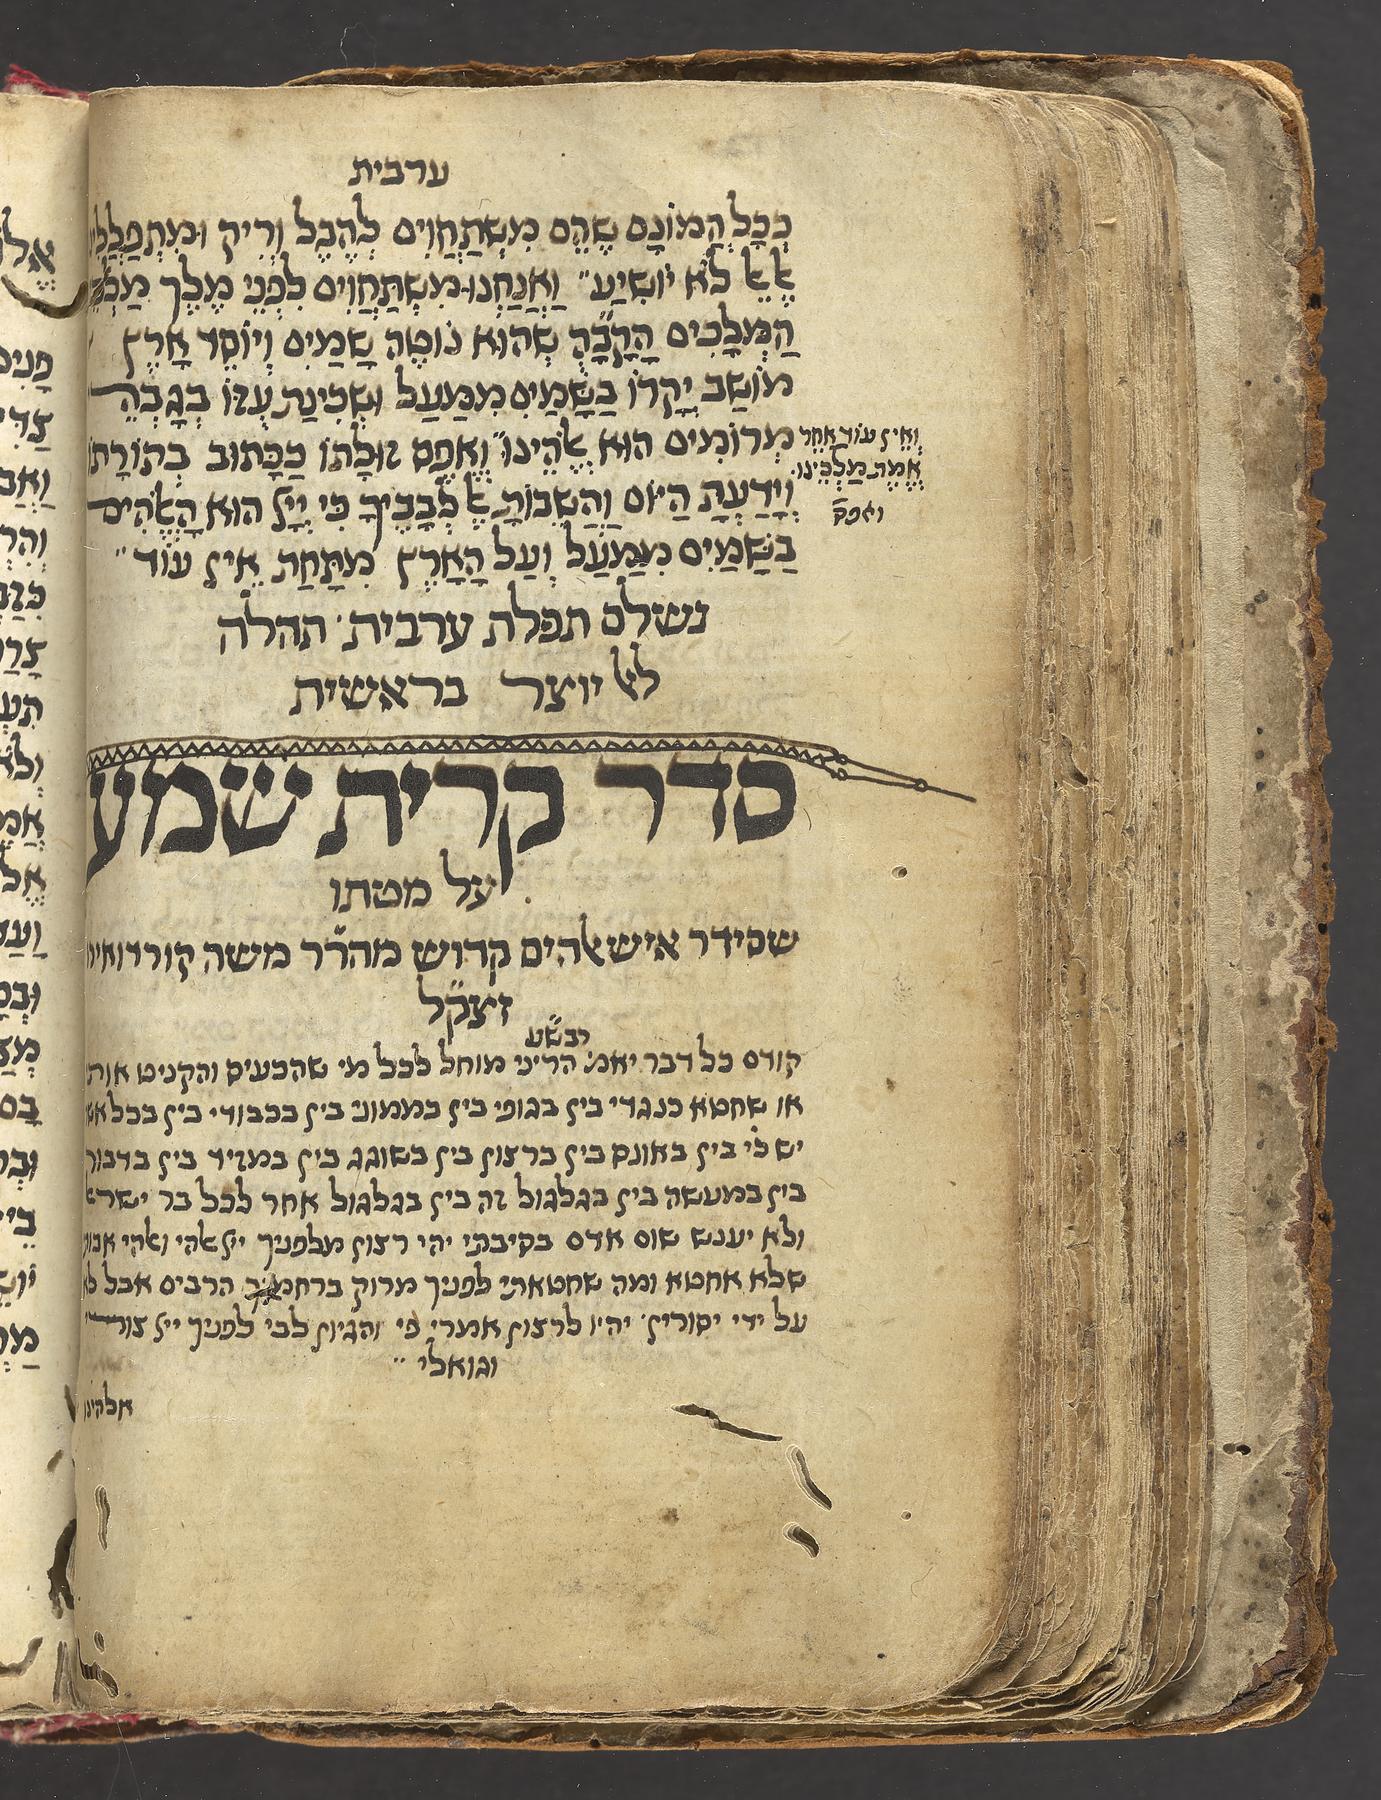 ערבית
כְּכָל הֲמוֹנָם שֶׁהֵם מִשְׁתַּחֲוִים לְהֶבֶל וְרִיק וּמִתְפַּלְלִים
אֶל אֵל לֹא יוֹשִׁיעַ וַאֲנַחְנוּ מִשְׁתַּחֲוִים לִפְנֵי מֶלֶךְ מַלְכֵי
הַמְּלָכִים הַקָּבָּ״ה שֶׁהוּא נוֹטֶה שָׁמַיִם וְיוֹסֵד אָרֶץ
מוֹשַׁב יְקָרוֹ בַּשָּׁמַיִם מִמַּעַל וּשְׁכִינַת עֻזּוֹ בְּגָבְהֵי
מְרוֹמִים הוּא אֱלֹהֵינוּ וְאֶפֶס זוּלָתוֹ כַּכָּתוּב בְּתוֹרָתוֹ
ואין עוד אחר
אֱמֶת מַלְכֵּינוּ
ואפס
וְיָדַעְתָּ הַיּוֹם וַהֲשֵׁבוֹתָ אֶל לְבָבֶיךָ כִּי יְיָ הוּא הָאֱלֹהִים
בַּשָּׁמַיִם מִמַּעַל וְעַל הָאָרֶץ מִתָּחַת אֵין עוֹד
נשלם תפלת ערבית תהלה
לאל יוצר בראשית
סדר קרית שמע
על מטתו
שסידר איש אלהים קדוש מהר״ר משה קורדואירו
זצק״ל
רבש״ע
קודם כל דבר יאמ׳ הריני מוחל לכל מי שהכעיס והקניט אותי
או שחטא כנגדי בין בגופי בין בממוני בין בכבודי בין בכל אשר
יש לי בין באונס בין ברצון בין בשוגג בין במזיד בין בדבור
בין במעשה בין בגלגול זה בין בגלגול אחר לכל בר ישראל
ולא יענש שום אדם בסיבתי יהי רצון מלפניך ייי אלהי ואלהי אבותי
שלא אחטא ומה שחטאתי לפניך מרוק ברחמיך הרבים אבל לא
על ידי יסורין יהיו לרצון אמרי פי והגיון לבי לפניך ייי צורי
וגואלי
אלהינו